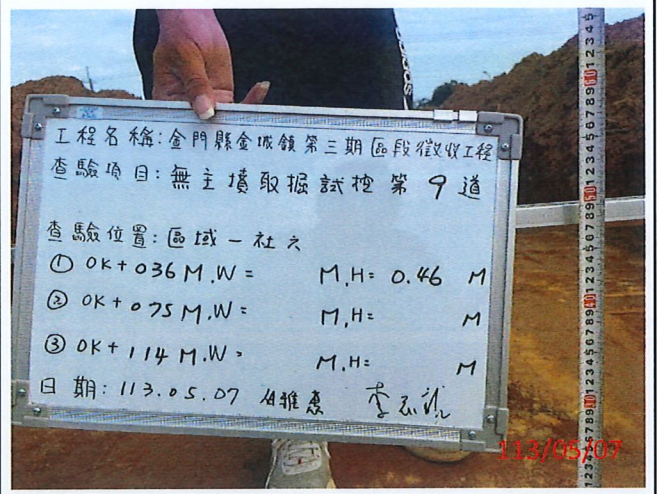 工程名稱:金門縣金城鎮第三期區段徵收工程
查驗項目:無主墳取掘試挖第9道
查驗位置:區域一社六
① 0K+036 M.W= M,H= 0.46 M
② 0K+075 M.W= M,H= M
③ 0K+114 M.W= M,H= M
日期:113.05.07
113/05/07